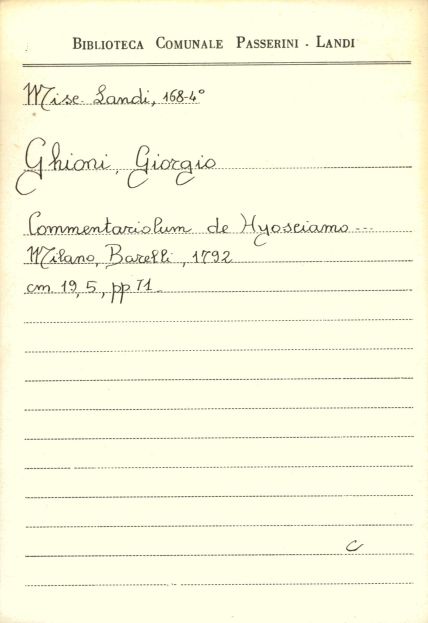 BIBLIOTECA COMUNALE PASSERINI - LANDI
Misc. Landi, 168-4°
Ghioni, Giorgio
Commentariolum de Hyosciamo ---
Milano, Barelli, 1792
cm. 19,5, pp 71
C